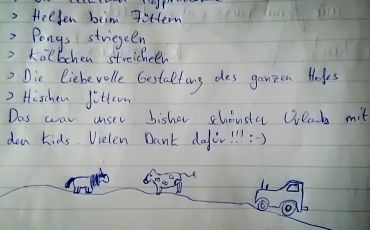 > Helfen beim Füttern
> Ponys striegeln
> Kälbchen streicheln
> Die liebevolle Gestaltung des ganzen Hofes
> Häschen füttern
Das war unser bisher schönster Urlaub mit
den Kids. Vielen Dank dafür!!! :-)